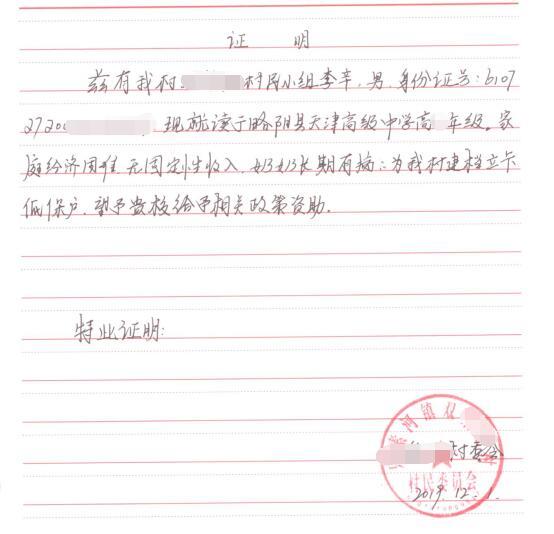 证 明
兹有我村村民小组李辛,男,身份证号:6107
27200,现就读于略阳县天津高级中学高年级。家
庭经济困难,无固定性收入,妈妈长期有病;为我村建档立卡
低保户,望予数核给予相关政策资助。
特此证明:
村委会
河镇双
村民委员会
2019.12.1.